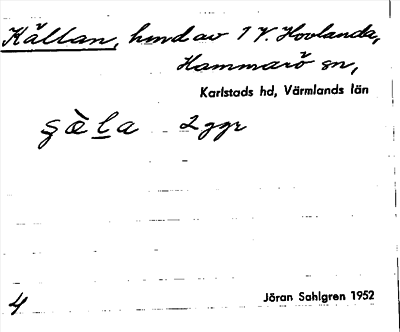 Källan, hmd av 1 V. Hovlanda,
Hammarö sn,
Karlstads hd, Värmlands län
ʂæ̀la 2 ggr
4
Jöran Sahlgren 1952